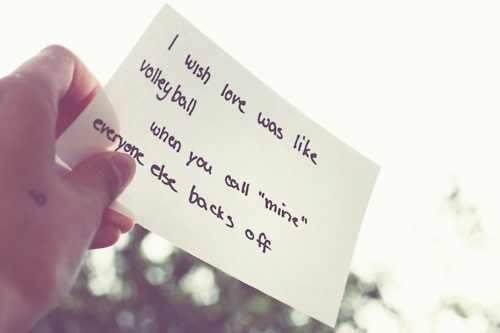 I wish love was like
volleyball
when you call "mine"
everyone else backs off